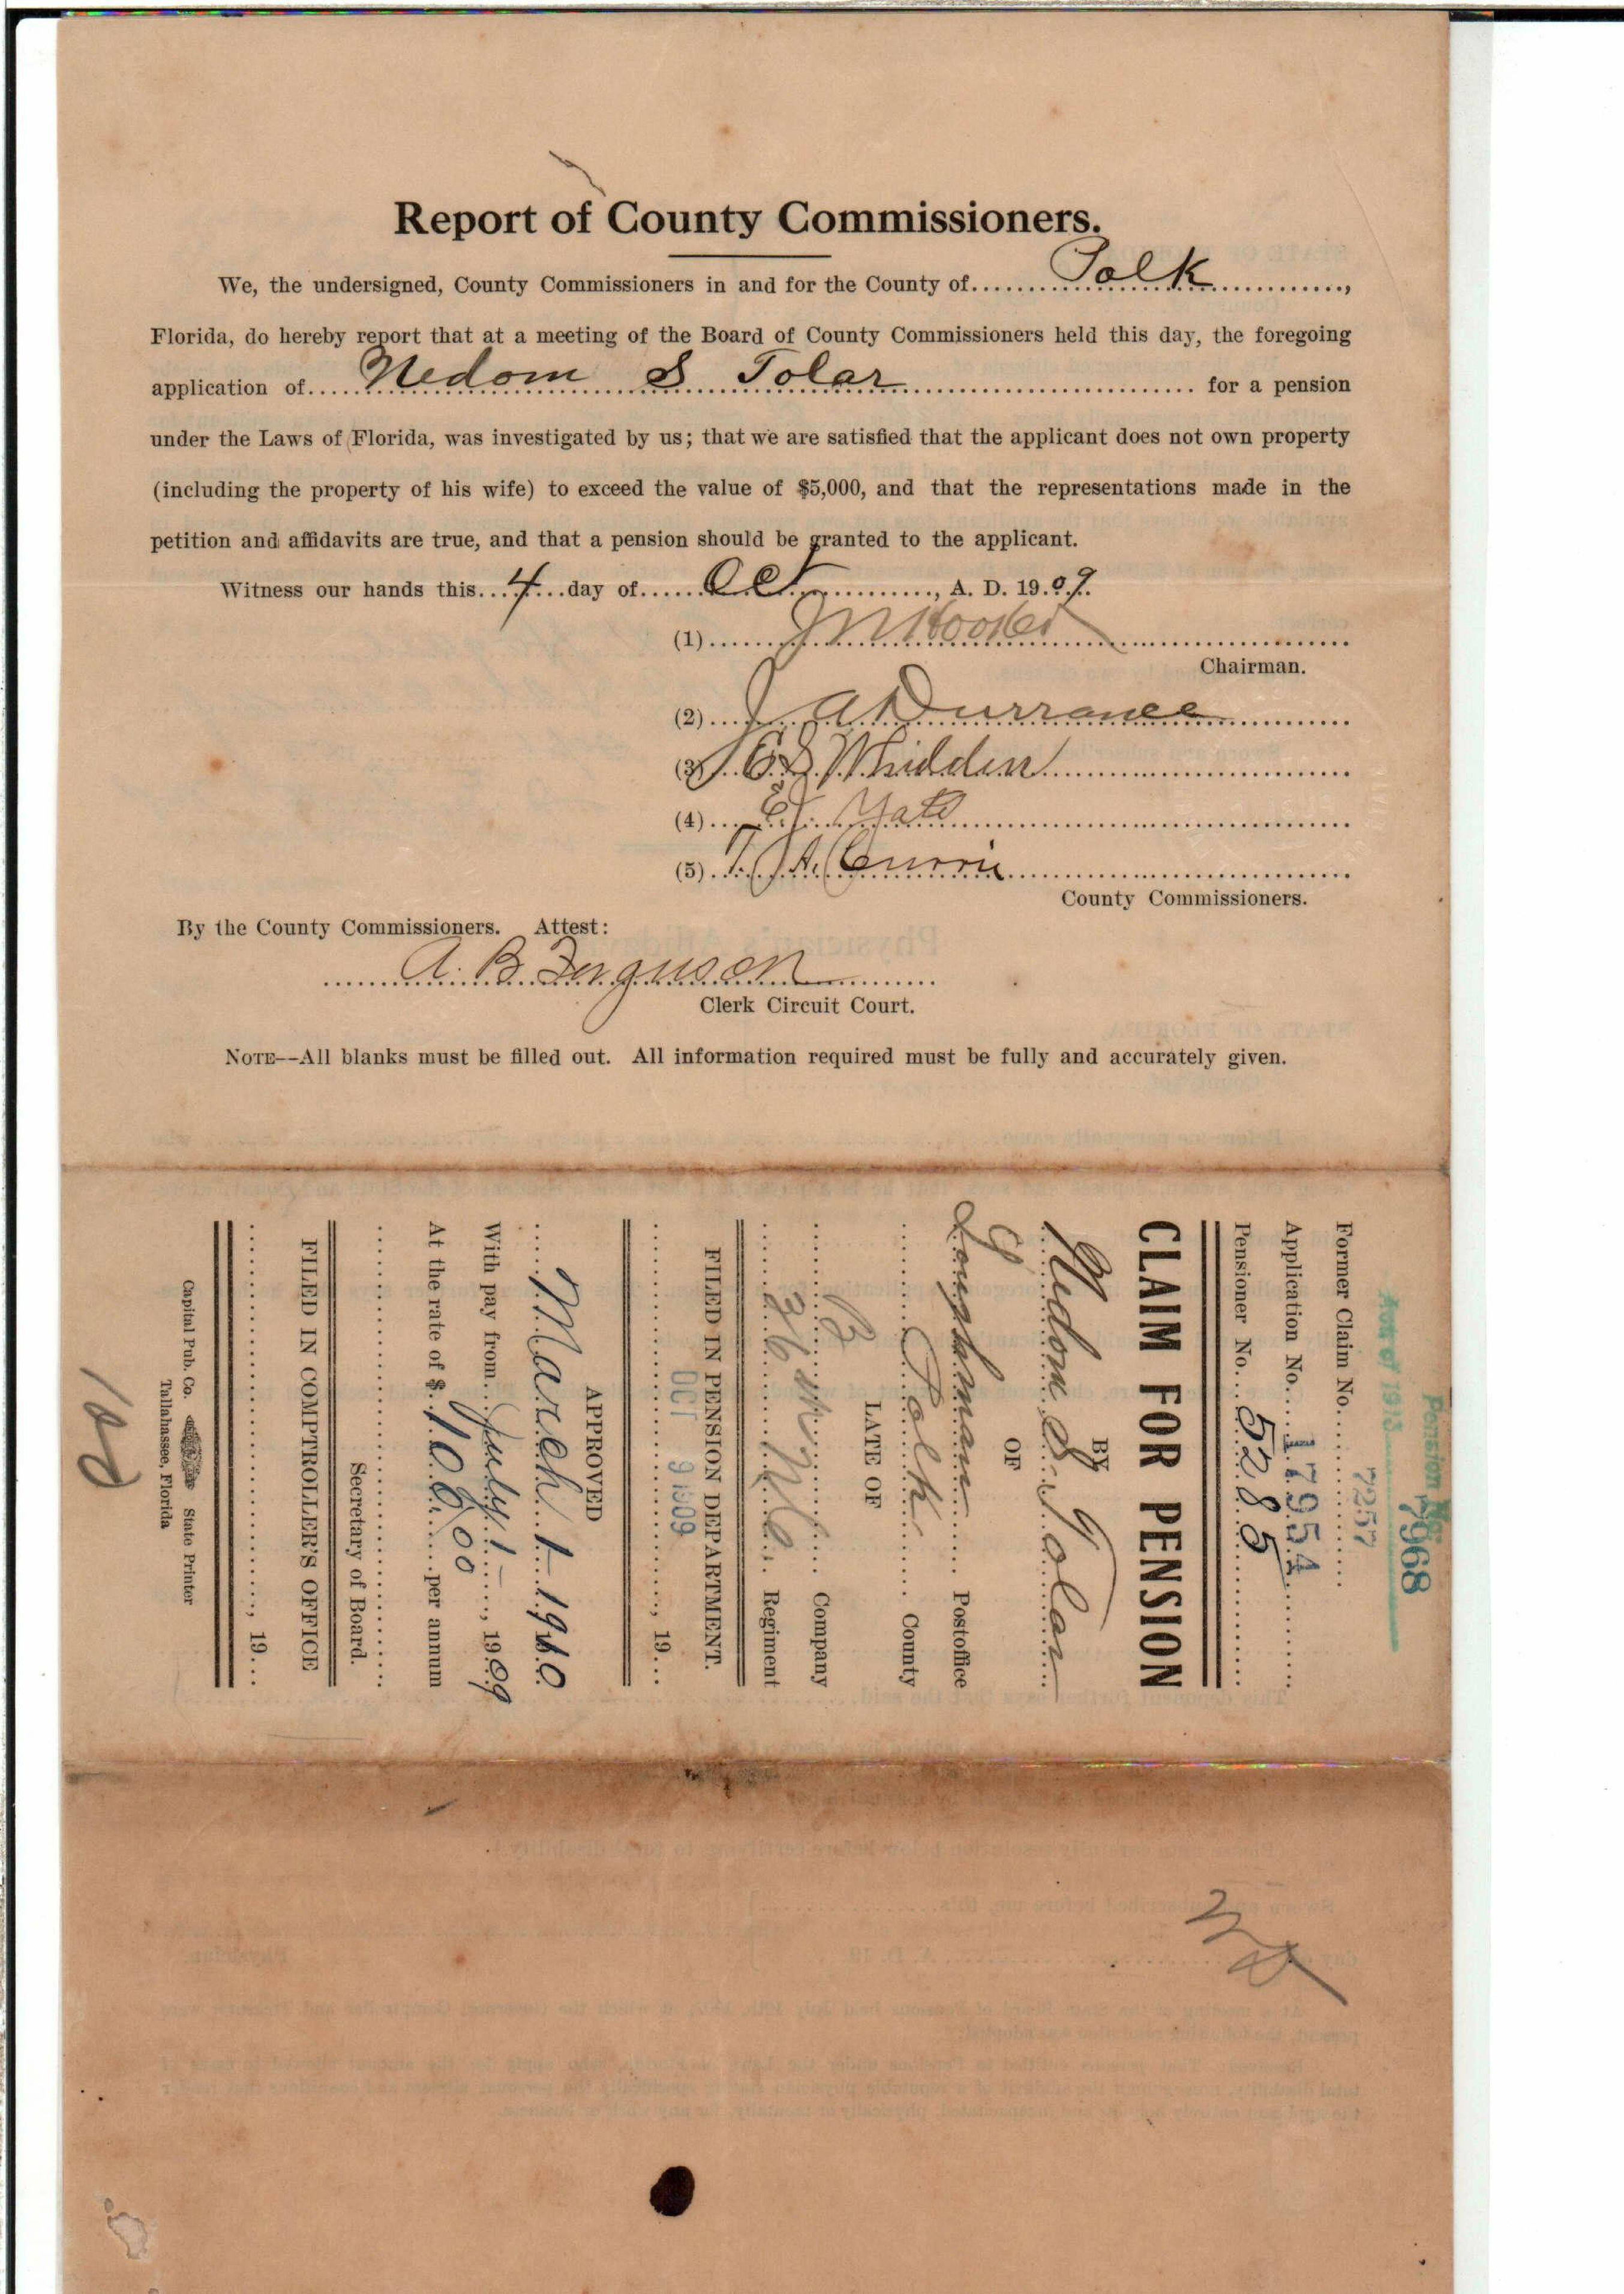 Report of County Commissioners.
We, the undersigned, County Commissioners in and for the County of Polk,
Florida, do hereby report that at a meeting of the Board of County Commissioners held this day, the foregoing
application of Nedom S Tolar for a pension
under the Laws of Florida, was investigated by us; that we are satisfied that the applicant does not own property
(including the property of his wife) to exceed the value of $5,000, and that the representations made in the
petition and affidavits are true, and that a pension should be granted to the applicant.
Witness our hands this 4 day of Oct, A. D. 1909.
(1) J M Hooker
Chairman.
(2) J A Durrance
(3) E S Whidden
(4) Yates
(5) T. J. A. Currie
County Commissioners.
By the County Commissioners. Attest:
A. B. Ferguson
Clerk Circuit Court.
NOTE--All blanks must be filled out. All information required must be fully and accurately given.
Pension No. 7968
Act of 1913
Former Claim No. 7257
Application No. 17954
Pensioner No. 5285
CLAIM FOR PENSION
BY
Nedom S. Tolar
OF
Loughman Postoffice
Polk County
LATE OF
Company
36th N.C. Regiment
FILED IN PENSION DEPARTMENT.
OCT 9 1909
, 19
APPROVED
March 1- 1910
With pay from July 1-, 1909
At the rate of $ 108.00 per annum
Secretary of Board.
FILED IN COMPTROLLER'S OFFICE
, 19
Capital Pub. Co. State Printer
Tallahassee, Florida